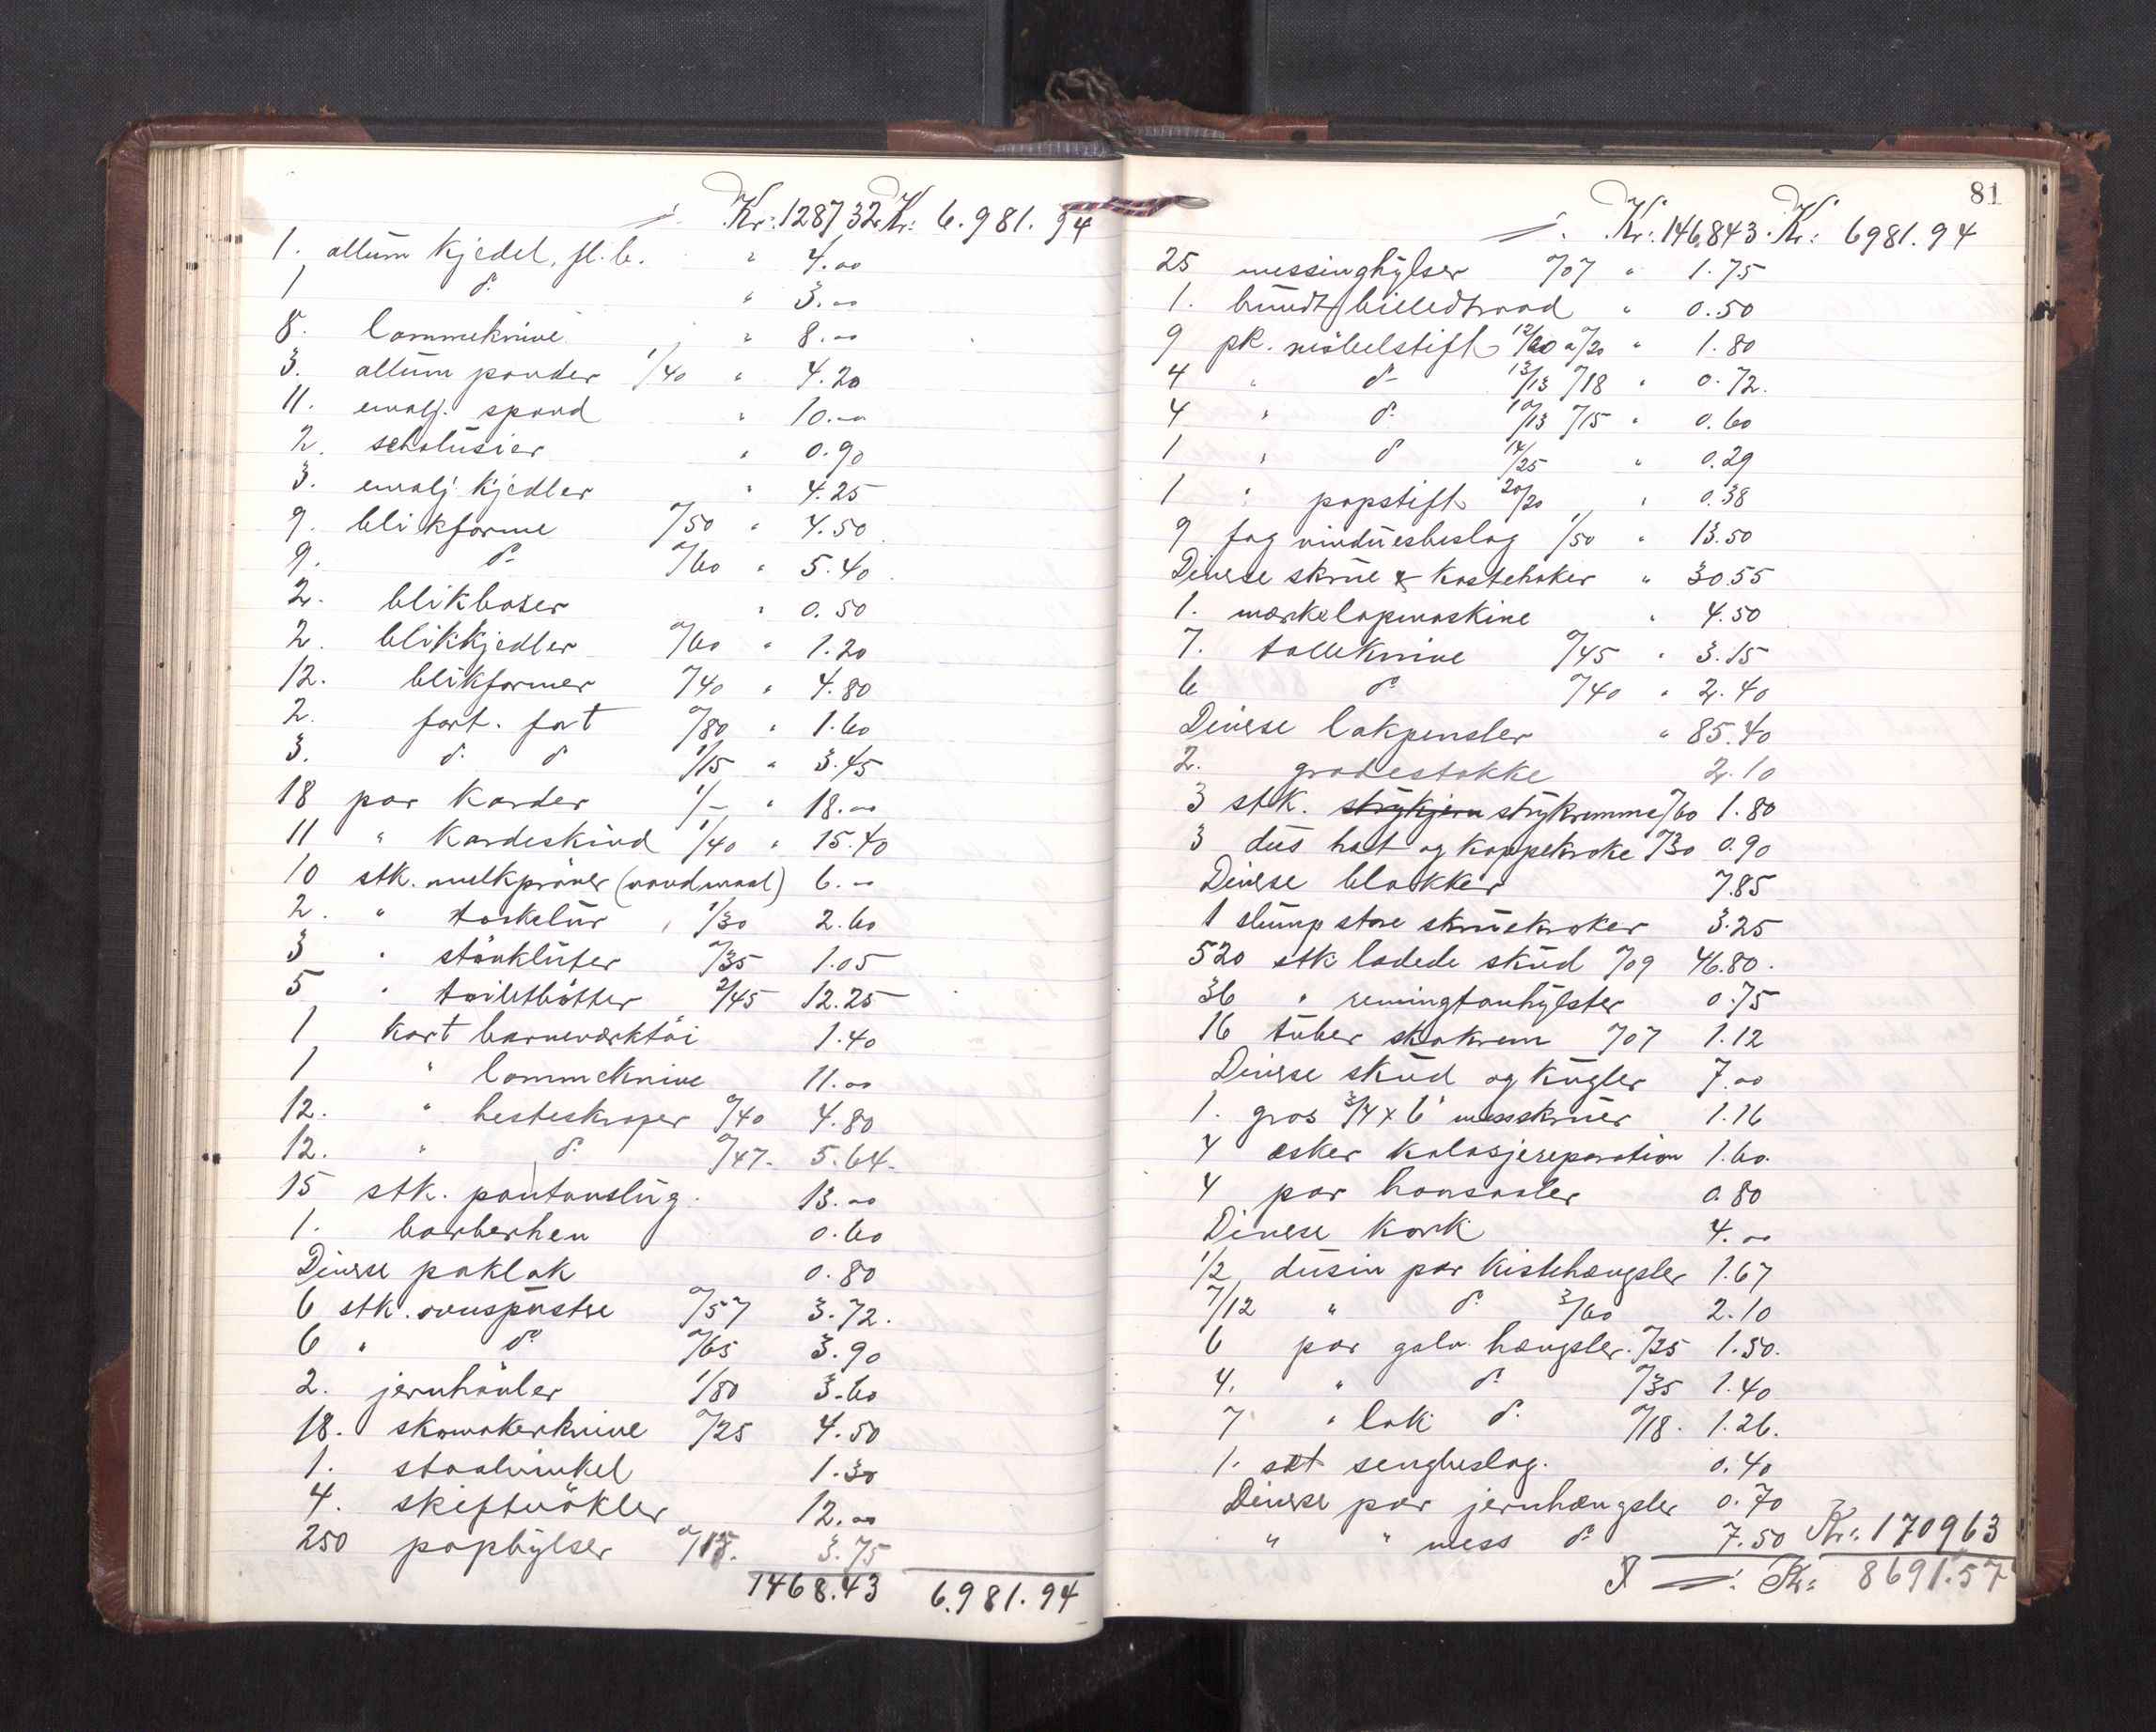 Kr: 1287 32 Kr: 6.981.94
1. allum kjedel, fl. b. " 4.00
1 do " 3.00
8. lommeknive " 8.00
3. allum pander 1/40 " 4.20
11. emalj. spand " 10.00
2. schalusier " 0.90
3. emalj. kjedler " 4.25
9. blikforme 0/50 " 4.50
9. do 0/60 " 5.40
2. blikbokser " 0.50
2. blikkjedler 0/60 " 1.20
12. blikformer 0/40 " 4.80
2. fort. fat 0/80 " 1.60
3. do do 1/15 " 3.45
18 par karder 1/- " 18.00
11 " kardeskind 1/40 " 15.40
10 stk. melkprøver (vandmaal) 6.00
2. " taakelur 1/30 2.60
3 " støvkluter 0/35 1.05
5 " toiletbøtter 2/45 12.25
1 kart barneværktøi 1.40
1 " lommeknive 11.00
12. " hesteskraper 0/40 4.80
12. " do 0/47. 5.64.
15 stk. pantanslug. 13.00
1. barberhøv 0.60
Diverse paklak 0.80
6 stk. ovnspusse 0/57 3.72.
6 " do 0/65 3.90
2. jernhøvler 1/80 3.60
18. skomakerknive 0/25 4.50
1. staalvinkel 1.30
4. skiftnøkler 12.00
250 paphylser 0/15. 3.75
1468.43 6.981.94
81
Kr: 146843. Kr: 6981.94
25 messinghylser 0/07 " 1.75
1. bundt billedtraad " 0.50
9 pk. møbelstift 12/20 a 0/20 " 1.80
4 " do 13/13 0/18 " 0.72.
4 " do 10/13 0/15 " 0.60
1 " do 14/25 " 0.29
1 " papstift 20/20 " 0.38
9 fag vinduesbeslag 1/50 " 13.50
Diverse skrue & kastehaker " 30.55
1. merkelapmaskine " 4.50
7. tolleknive 0/45 " 3.15
6 do 0/40 " 2.40
Diverse lakpensler " 85.40
2. gradestokke 2.10
3 stk. strykjern strykremme 0/60 1.80
3 dus hat og kappekroke 0/30 0.90
Diverse blokker 7.85
1 slump store skruekroker 3.25
520 stk ladede skud 0/09 46.80.
36 " remingtonhylster 0.75
16 tuber skokrem 0/07 1.12
Diverse skud og kugler 7.00
1. gros 3/4 x 6 messskruer 1.16
4 æsker kalosjereparation 1.60.
4 par haansaaler 0.80
Diverse kork 4.00
1/2 dusin par kistehængsler 1.67
7/12 " do 3/60 2.10
6 par galv. hængsler. 0/25 1.50.
4. " do 0/35 1.40
7 " lak do 0/18. 1.26.
1. sæt sengbeslag. 0.40
Diverse par jernhængsler 0.70
" " mess do 7.50 Kr: 170963
Kr: 8691.57